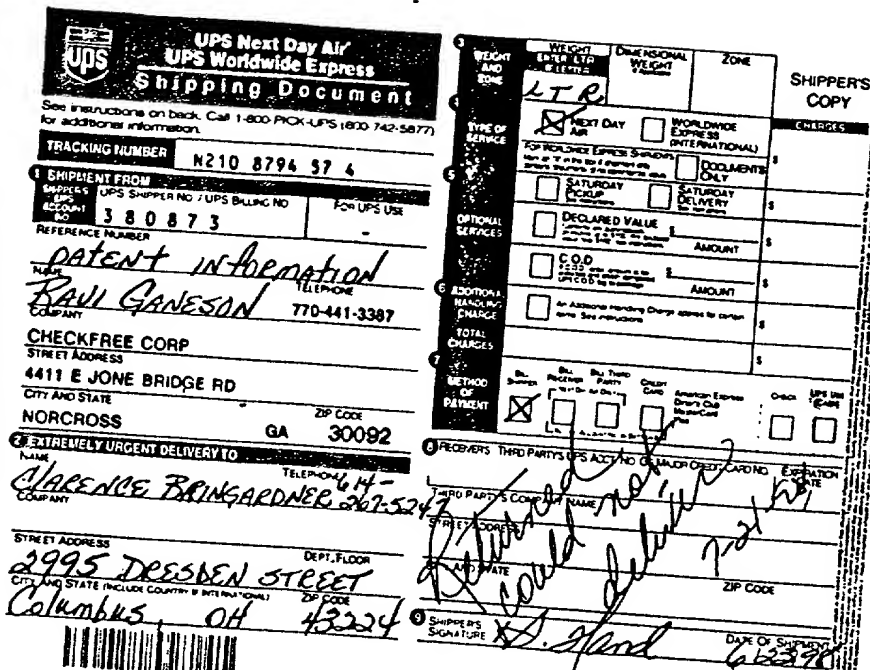 ups
UPS Next Day Air
UPS Worldwide Express
Shipping Document
See instructions on back. Call 1-800-PICK-UPS (800-742-5877)
for additional information.
TRACKING NUMBER N210 8794 57 4
1 SHIPMENT FROM
SHIPPER'S UPS ACCOUNT NO
UPS SHIPPER NO / UPS BILLING NO
380873
FOR UPS USE
REFERENCE NUMBER
PATENT INFORMATION
NAME
TELEPHONE
RAVI GANESON 770-441-3387
COMPANY
CHECKFREE CORP
STREET ADDRESS
4411 E JONE BRIDGE RD
CITY AND STATE
ZIP CODE
NORCROSS GA 30092
2 EXTREMELY URGENT DELIVERY TO
NAME
TELEPHONE 614-
CLARENCE BRINGARDNER 267-5247
COMPANY
STREET ADDRESS
DEPT./FLOOR
2995 DRESDEN STREET
CITY AND STATE (INCLUDE COUNTRY IF INTERNATIONAL)
ZIP CODE
Columbus, OH 43224
3 WEIGHT AND ZONE
WEIGHT
ENTER LTR IF LETTER
LTR
DIMENSIONAL WEIGHT
ZONE
SHIPPER'S COPY
CHARGES
TYPE OF SERVICE
NEXT DAY AIR
WORLDWIDE EXPRESS (INTERNATIONAL)
FOR WORLDWIDE EXPRESS SHIPMENTS
DOCUMENTS ONLY
$
5
OPTIONAL SERVICES
SATURDAY PICKUP
SATURDAY DELIVERY
$
DECLARED VALUE
$
AMOUNT
$
C.O.D
$
AMOUNT
$
6 ADDITIONAL HANDLING CHARGE
An Additional Handling Charge applies for certain items. See instructions
$
TOTAL CHARGES
$
7 METHOD OF PAYMENT
BILL SHIPPER
BILL RECEIVER
BILL THIRD PARTY
CREDIT CARD
American Express
Diner's Club
MasterCard
Visa
CHECK
8 RECEIVER'S THIRD PARTY'S UPS ACCT NO OR MAJOR CREDIT CARD NO. EXPIRATION DATE
THIRD PARTY'S COMPANY NAME
STREET ADDRESS
CITY AND STATE
ZIP CODE
Returned
could not
deliver
9 SHIPPER'S SIGNATURE
DATE OF SHIPMENT